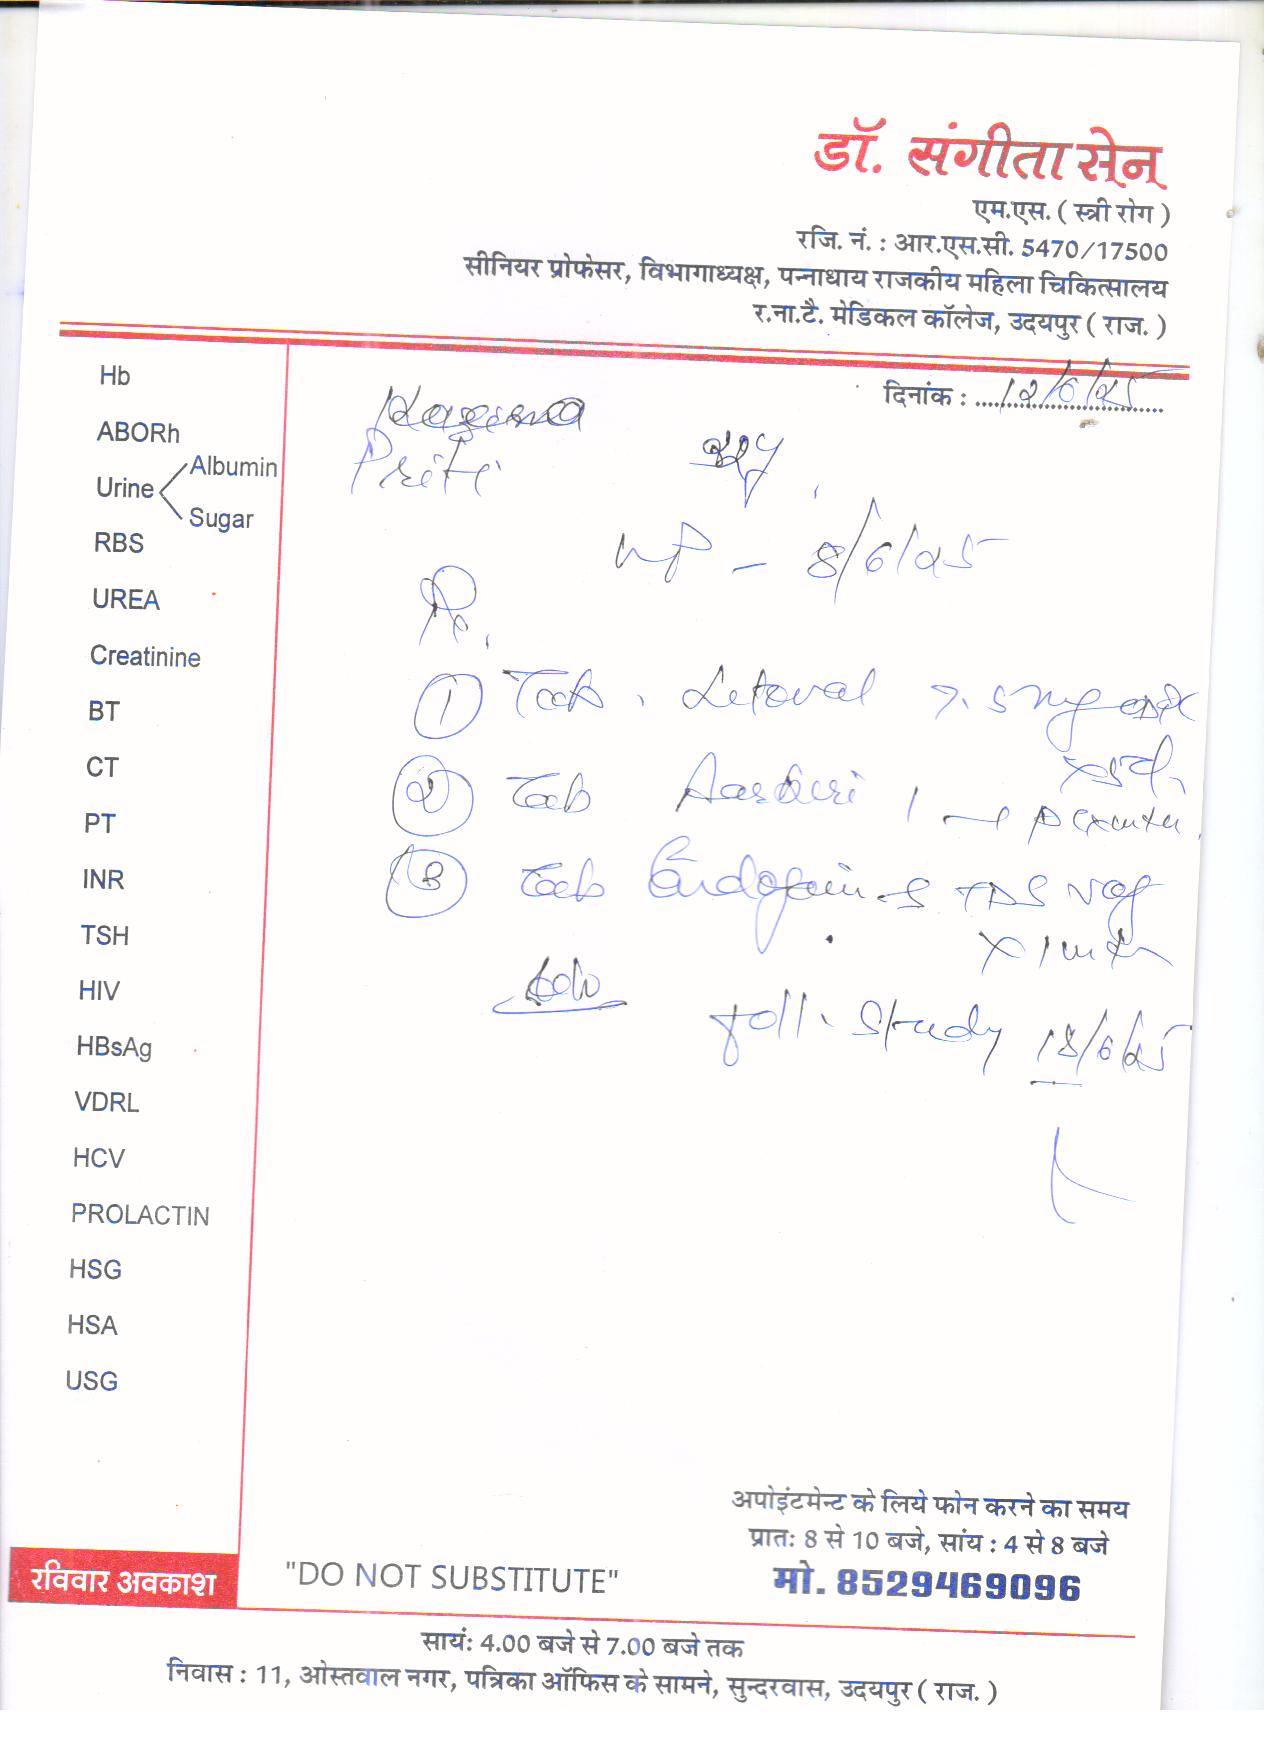 डॉ. संगीता सेन
एम.एस. ( स्त्री रोग )
रजि. नं. : आर.एस.सी. 5470/17500
सीनियर प्रोफेसर, विभागाध्यक्ष, पन्नाधाय राजकीय महिला चिकित्सालय
र.ना.टै. मेडिकल कॉलेज, उदयपुर ( राज. )
दिनांक : 12/6/25
Hb
ABORh
Urine
Albumin
Sugar
RBS
UREA
Creatinine
BT
CT
PT
INR
TSH
HIV
HBsAg
VDRL
HCV
PROLACTIN
HSG
HSA
USG
Priti
LMP - 8/6/25
Rx.
① Tab. Letoval 7.5mg
x 5d
② Tab 1
③ Tab
x 1 mth
Adv
foll. Study 18/6/25
अपोइंटमेन्ट के लिये फोन करने का समय
प्रातः 8 से 10 बजे, सांय : 4 से 8 बजे
मो. 8529469096
रविवार अवकाश
"DO NOT SUBSTITUTE"
सायंः 4.00 बजे से 7.00 बजे तक
निवास : 11, ओस्तवाल नगर, पत्रिका ऑफिस के सामने, सुन्दरवास, उदयपुर ( राज. )